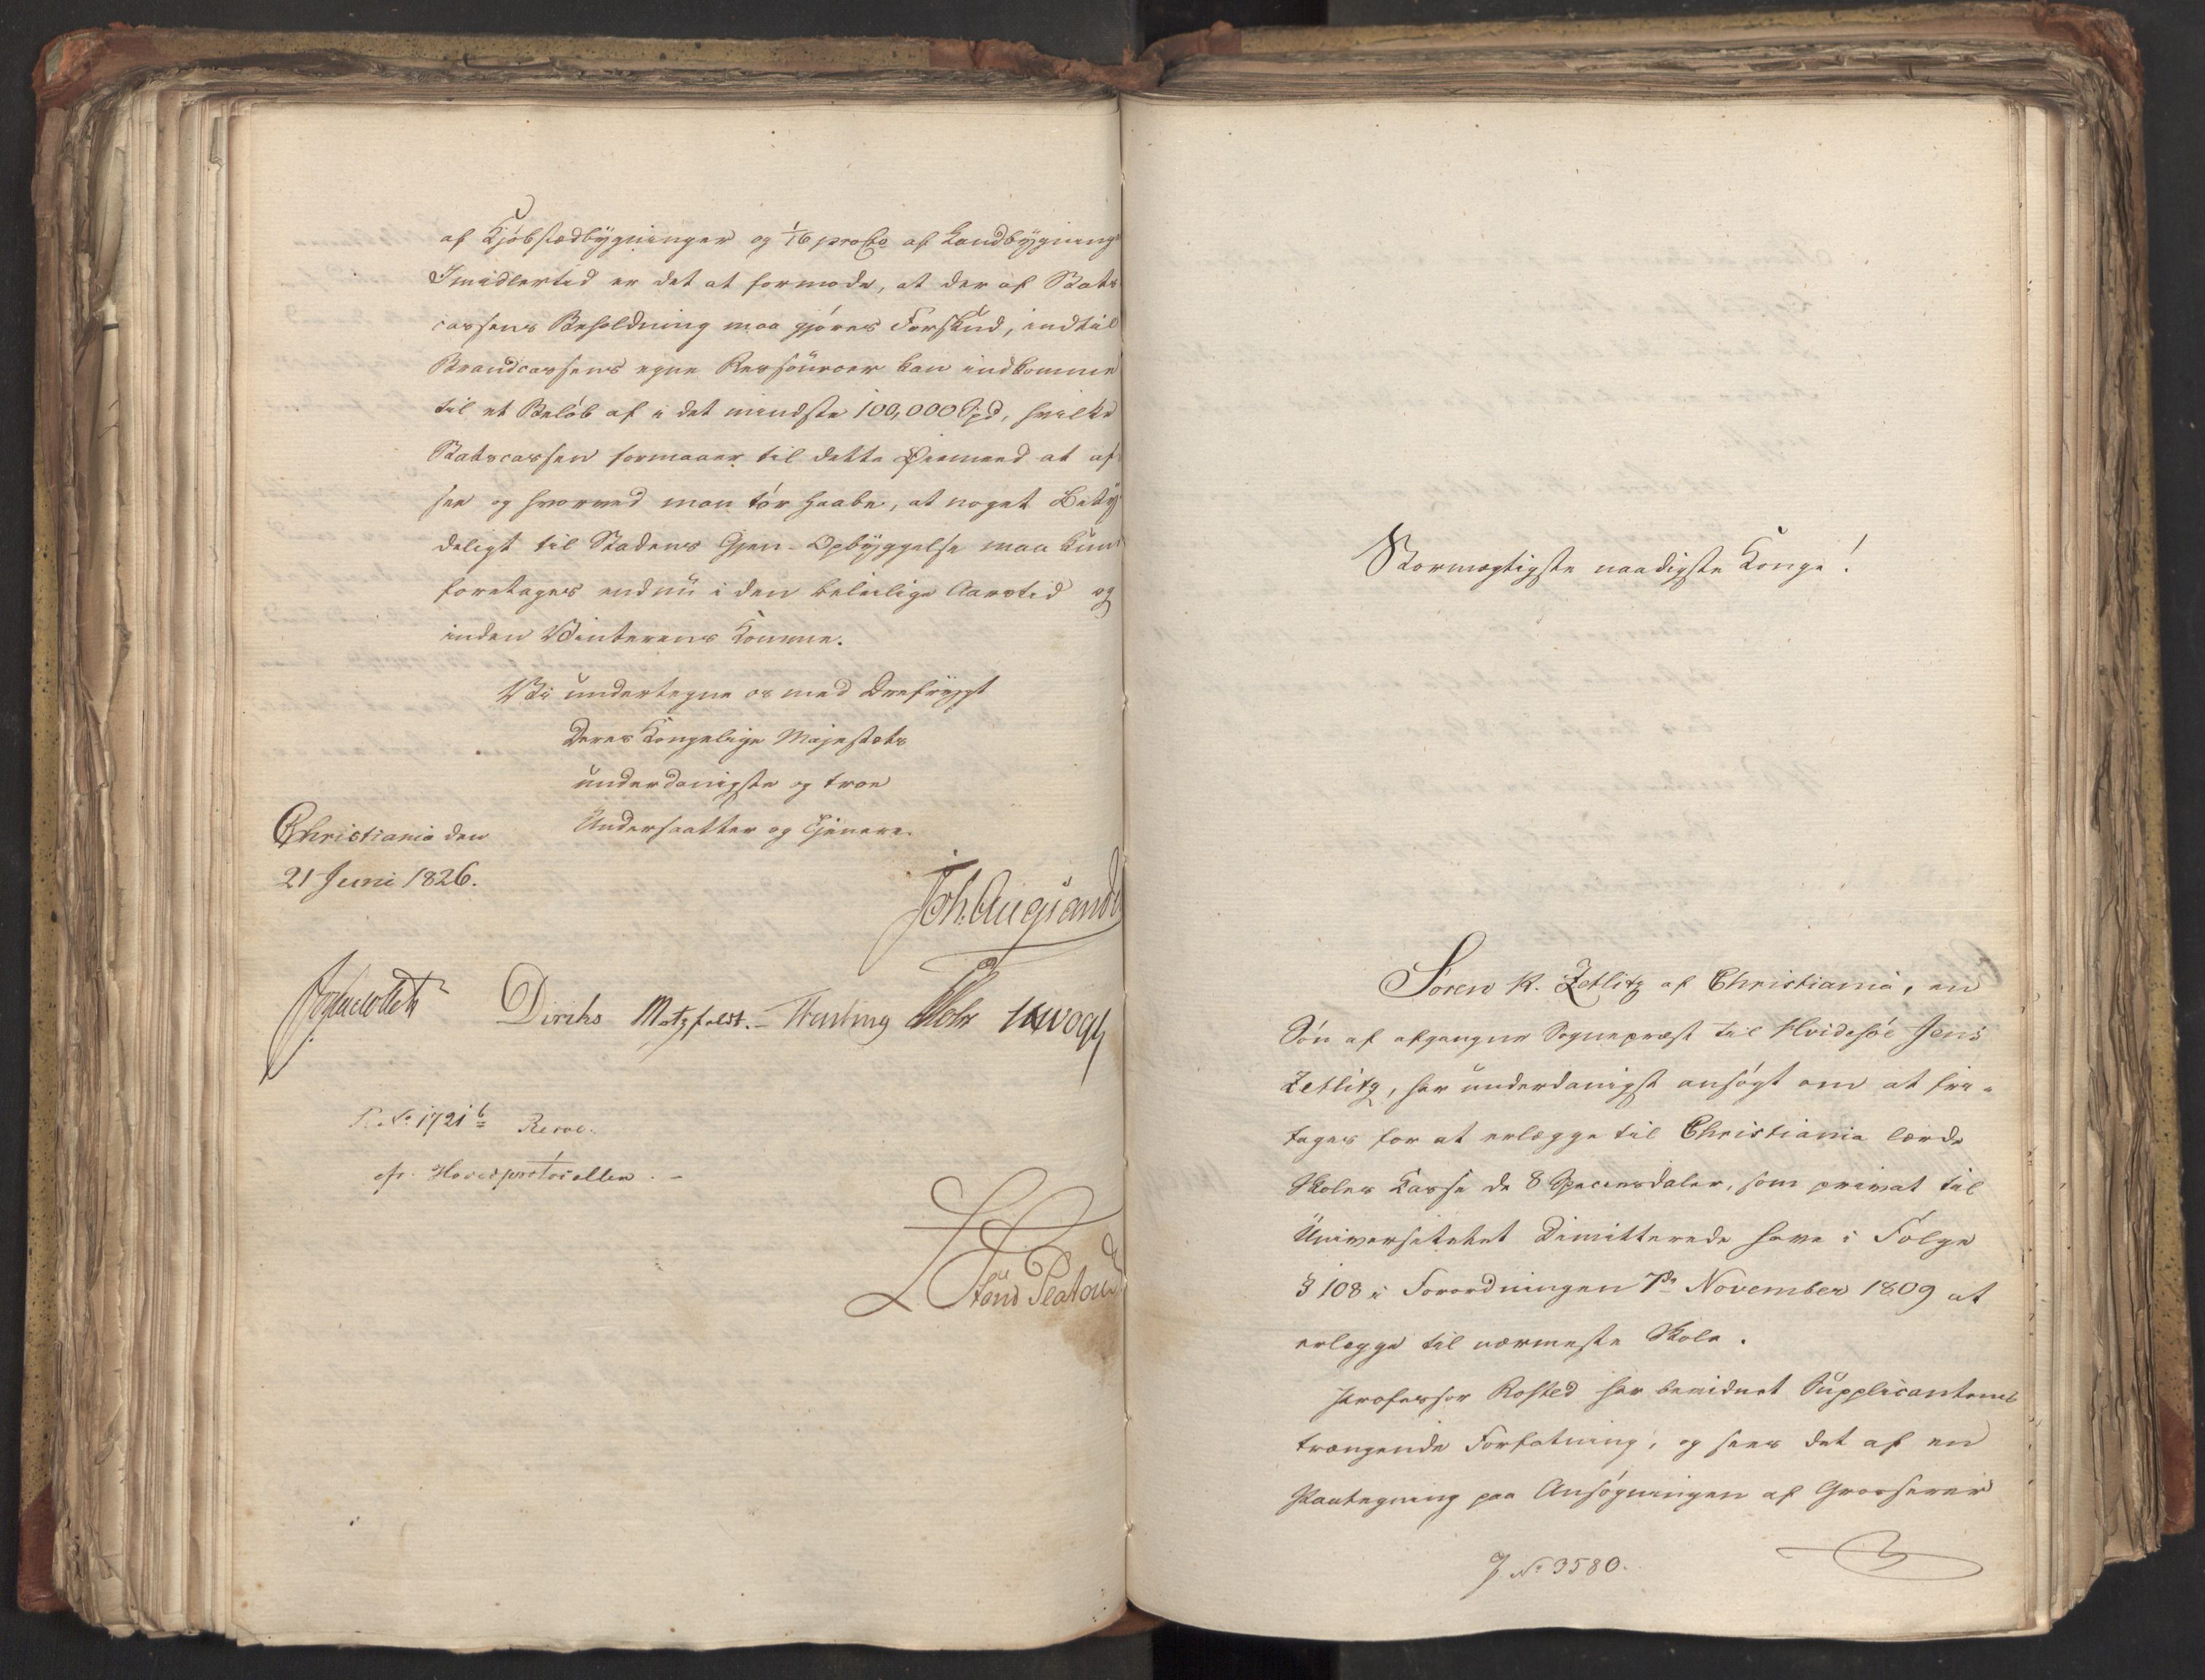 af Kjøbstædbygninger og 1/16 proCto af Landbygning
Imidlertid er det at formode, at der af Stats
cassens Beholdning maa gjøres Forskud, indtil
Brandcassens egne Ressourcer kan indkomme
til et Beløb af i det mindste 100,000 Spd, hvilke
Statscassen formaaer til dette Øiemeed at af
see og hvorved man tør haabe, at noget Bety
deligt til Stadens Gjen-Opbyggelse maa kun
foretages endnu i den beleilige Aarstid og
inden Vinterens Komme.
Vi undertegne os med Dref​rygt
Deres Kongelige Majestæts
underdanigste og troe
Undersaatter og Tjenere.
Christiania den
21 Juni 1826.
Joh. Aug Sande
Diriks Motzfeldt. Treschow Holst
No 1721b
cfr. Hovedprotocollen. -
Stormægtigste naadigste Konge!
Søren R. Zetlitz af Christiania, en
Søn af afgangne Sognepræst til Hvidesøe Jens
Zetlitz, har underdanigst ansøgt om at fri-
tages for at erlægge til Christiania lærde
Skoles Casse de 8 Speciesdaler, som privat til
Universitetet Dimitterede have i Følge
§ 108 i Forordningen 7de November 1809 at
erlægge til nærmeste Skole.
Professor Rosted har bevidnet Supplicantens
trængende Forfatning, og sees det af en
Paategning paa Ansøgningen af Grosserer
J. No 3580.